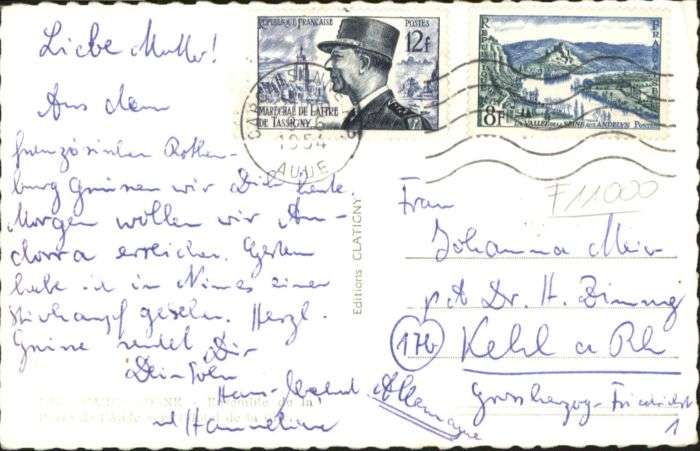 Liebe Mutter!
Aus dem
französischen Rothen-
burg Grüssen wir Dich heute
Morgen wollen wir An-
dorra erreichen. Gestern
habe ich in Nimes einen
Stierkampf gesehen. Herzl.
Grüsse sendet Dir
Dein Sohn
und Hannelore
REPUBLIQUE FRANÇAISE POSTES
12F
MARÉCHAL DE LATTRE
DE TASSIGNY
1954
AUDE
REPUBLIQUE FRANÇAISE
8F
LA VALLÉE DE LA SEINE AUX ANDELYS POSTES
Editions CLATIGNY
F11000
Frau
Johanna Meir
Dr. H.
17b Kehl a Rh
Allemagne
Grossherzog-Friedrichst
1